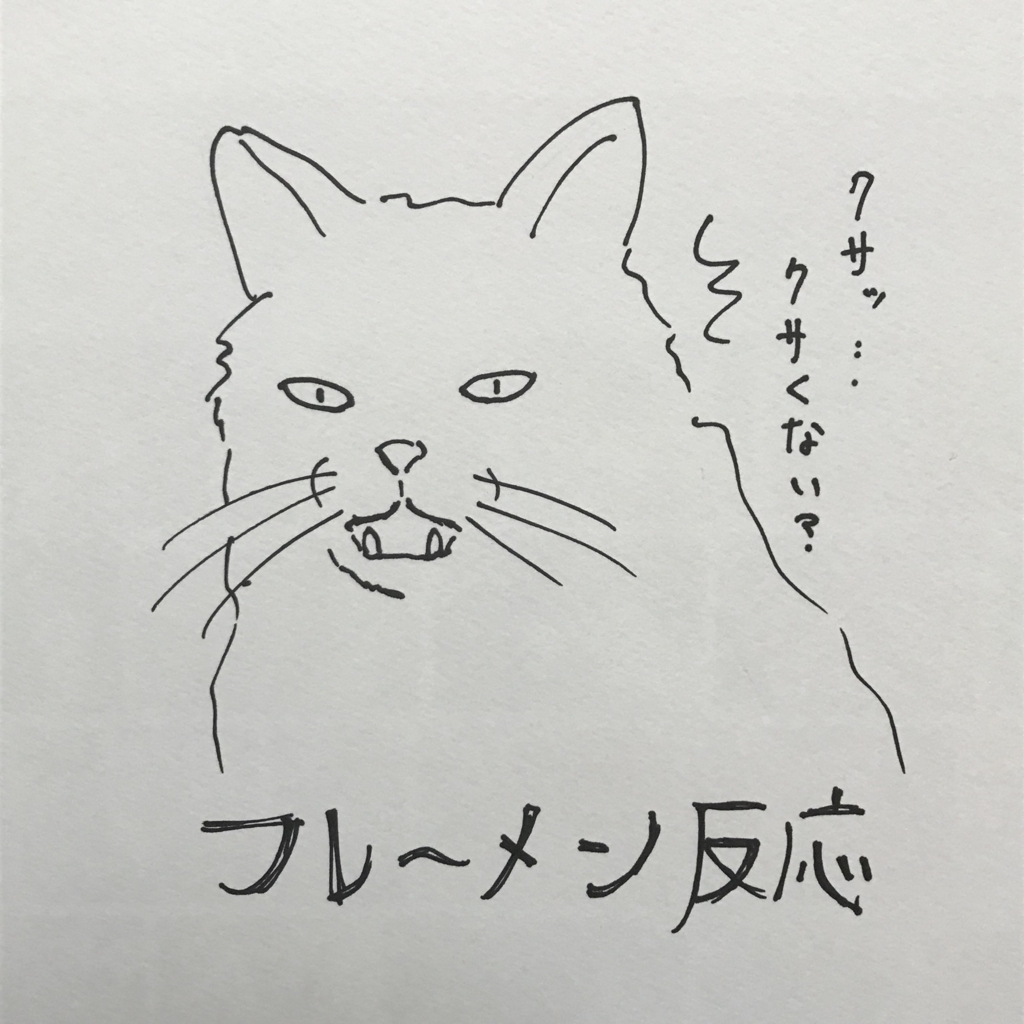 クサッ…
クサくない?
フレーメン反応